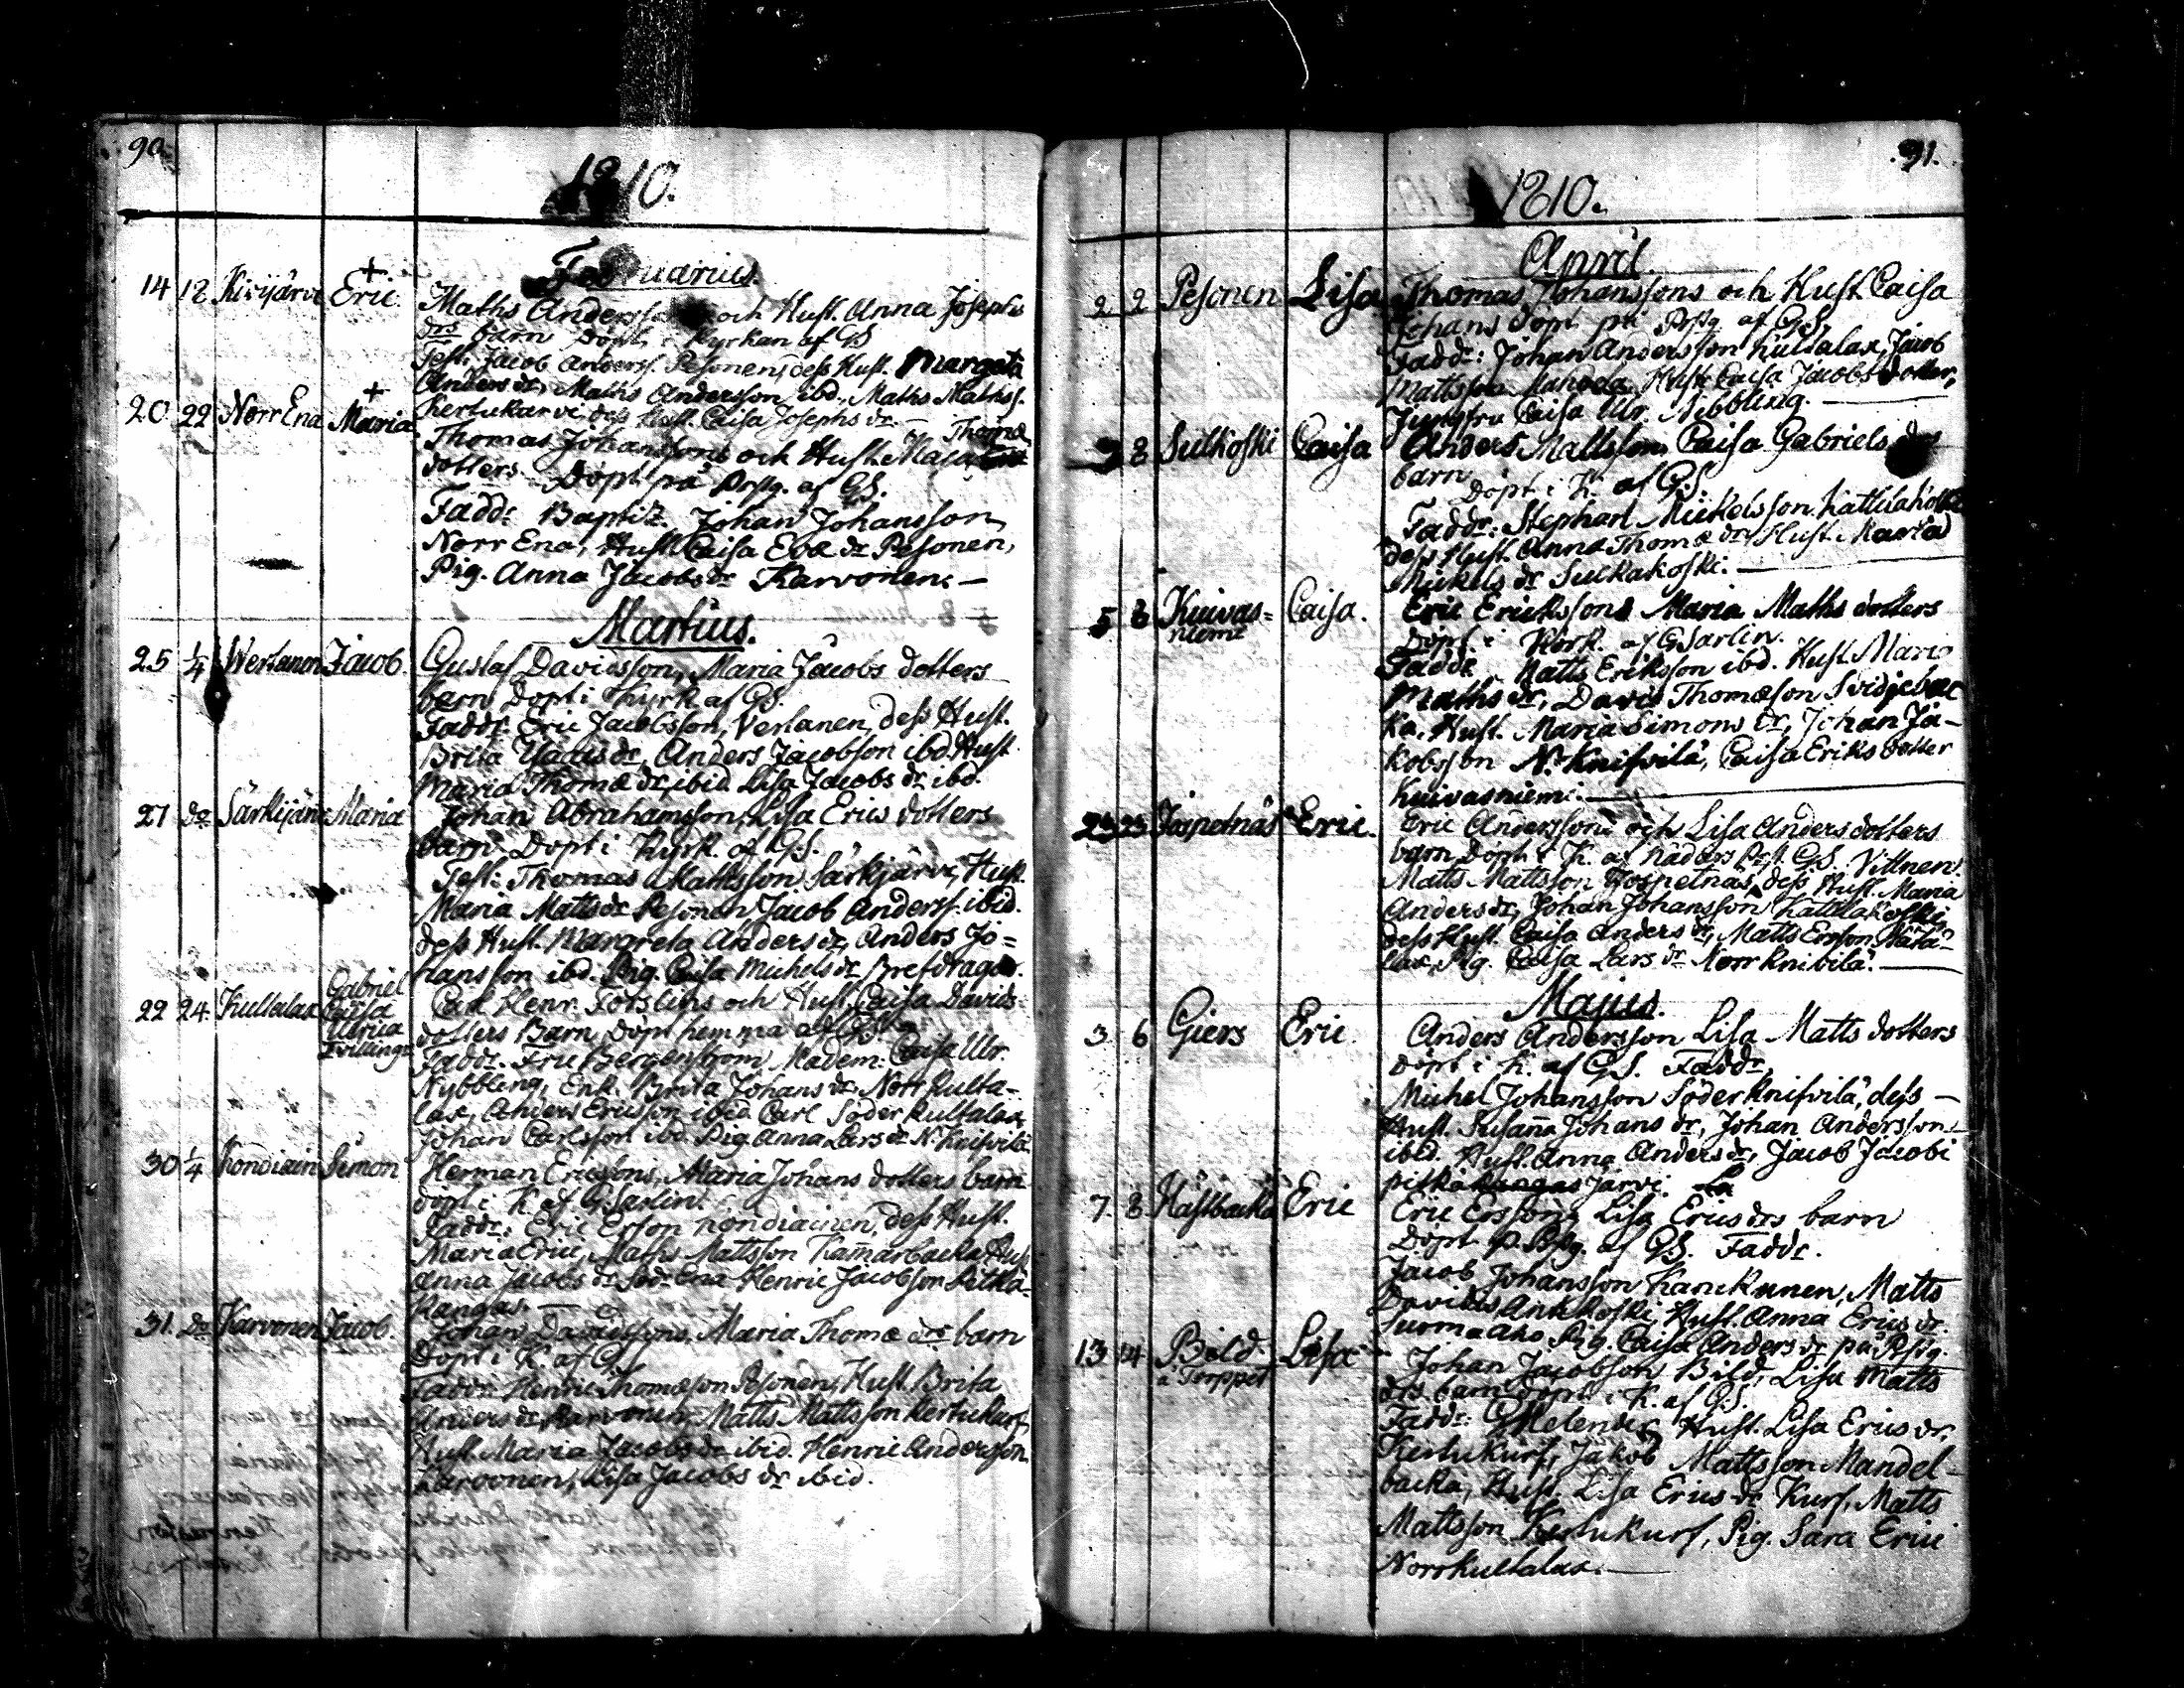 90.
1810.
Februarius.
14 18 Kivijärvi Eric. Maths Anderssons och Hust. Anna Josephs
drs barn Döpt i Kyrkan af GS
Test: Jacob Anderss. Pesonen, dess Hust. Margeta
Anders dr, Maths Andersson ibd, Maths Mathss.
Kertukarvi, dess Hust. Caisa Josephs dr
20 22 Norr Ena Maria Thomas Johanssons och Hust. Maja Thomæ
dotters Döpt på Prstg. af GS.
Faddr Baptiz. Johan Johansson
Norr Ena, Hust. Caisa Evæ dr Pesonen,
Pig. Anna Jacobs dr Karvonen. —
Martius.
25 1/4 Werlanen Jacob. Gustaf Davidsson, Maria Jacobs dotters
barn Döpt i Kyrk. af GS.
Faddr. Eric Jacobsson, Verlanen, dess Hust.
Brita dr, Anders Jacobson ibd. Hust
Maria Thomæ dr, ibid. Lisa Jacobs dr ibd.
27 do Särkijärvi Maria Johan Abrahamsson, Lisa Erics dotters
barn Döpt i Kyrk. af GS.
Test: Thomas Mattsson Särkjärvi, Hust.
Maria Matts dr Pesonen Jacob Anderss. ibid.
dess Hust. Margreta Anders dr, Anders Jo=
hansson ibd. Pig. Caisa Michels dr Brefdragar.
22 24. Kultalax Gabriel
Caisa
Ulrica
Tvillingr
Carl Henr. Forslins och Hust. Caisa Davids=
dotters Barn, döpt hemma af
Faddr. Fru Bergenstrom, Madem: Caisa Ulr.
Nybbling, Enk. Brita Johans dr. Norr Kulta-
lax, Anders Ericsson ibid. Carl Söder Kultalax,
Johan Carlsson ibd. Pig. Anna Lars dr N. Knifvilä
30 1/4 Kondiain Simon Herman Ericssons, Maria Johans dotters barn
döpt i K. af G. Sarlin.
Faddr: Eric Ersson Kondiainen, dess Hust.
Maria Erici, Maths Mattsson Kamarbacka Hust
Anna Jacobs dr Södr Ena Henric Jacobson Pitka-
Kangas. —
31. Do Karvonen Jacob. Johan Davidssons, Maria Thomæ drs barn
Döpt i K. af GS
Faddr: Henric Thomæson Pesonen, Hust. Brita
Anders dr, Karvonen, Matts Mattsson Kertukurf,
Hust. Maria Jacobs dr ibid. Henric Andersson
Karvonen, Lisa Jacobs dr ibid.
91.
1810.
April.
2 2 Pesonen Lisa Thomas Johanssons och Hust. Caisa
Johans Döpt på Prstg. af GS,
Faddr: Johan Andersson Kultalax, Jacob
Mattsson Mandela, Hust. Caisa Jacobs dotter,
Jungfru Caisa Ulr. Nibbling. —
8 Sulkoski Caisa Anders Mattsson, Caisa Gabriels drs
barn Döpt i K. af GS
Faddr: Stephan Mickelsson Kattilakoski
dess Hust. Anna Thomæ dr, Hust. Maria
Mickels dr Sulkakoski. —
5 8 Kuivas=
niemi Caisa. Eric Erikssons Maria Maths dotters
Döpt i Kyrk. af G. Sarlin.
Faddr. Matts Eriksson ibd. Hust. Maria
Maths dr, David Thomæson Svidjebac
ka, Hust. Maria Simons dr, Johan Ja-
kobsson N. Knifvilä, Caisa Eriks dotter
Kuivasniemi. —
23 25 Jospetnäs Eric. Eric Anderssons och Lisa Anders dotters
barn, döpt i K. af GS. Vittnen
Matts Mattsson Jospetnäs, dess Hust. Maria
Anders dr, Johan Johansson Kattilakoski,
dess Hust. Caisa Anders dr, Matts Ersson
Pig. Caisa Lars dr Norr Knivilä. —
Majus.
3 6 Giers Eric. Anders Andersson Lisa Matts dotters
döpt i K. af GS. Faddr,
Michel Johansson Söder Knifvilä, dess —
Hust. Susana Johans dr, Johan Andersson
ibid. Hust. Anna Anders dr, Jacob Jacobi
Pitkäkangas Järvi.
7. 8 Hästbacka Eric Eric Erssons Lisa Erics drs barn
Döpt p. Prstg. af GS. Faddr.
Jacob Johansson Kanckunen, Matts
Davids Ankkoski, Hust. Anna Erics dr.
Suomaaho Pig. Caisa Anders dr på Prstg.
13 14 Bild
a Torppet Lisa Johan Jacobson Bild, Lisa Matts
drs. barn döpt i K. af GS.
Faddr: G Melender, Hust. Lisa Erics dr,
Kertukurf, Jakob Mattsson Mandel-
backa, Hust. Lisa Erics dr Kurf, Matts
Mattsson Kertukurf, Pig. Sara Erici
Norrkultalax. —